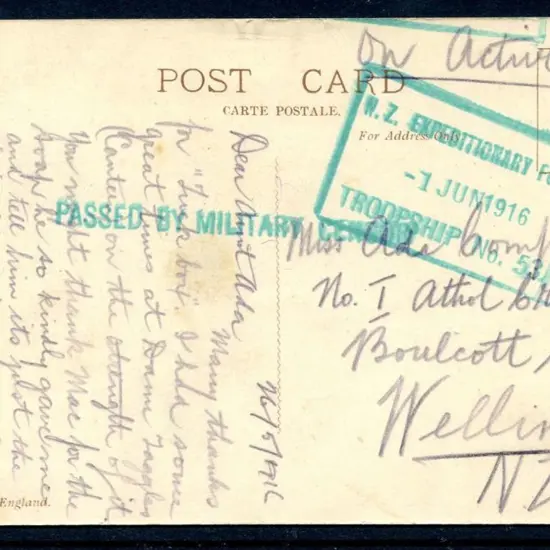 On Active
POST CARD
CARTE POSTALE.
For Address Only.
N.Z. EXPEDITIONARY FO
-1 JUN 1916
TROOPSHIP No. 53
PASSED BY MILITARY CENSOR
Miss Ada
No. I Athol
Boulcott
Wellin
NZ
26/5/1916
Dear Aunt Ada
Many thanks
for "Luck box". I had some
great times at Dame
Canteen on the strength of it
You might thank Mac for the
soap he so kindly gave me
and tell him its just the
England.